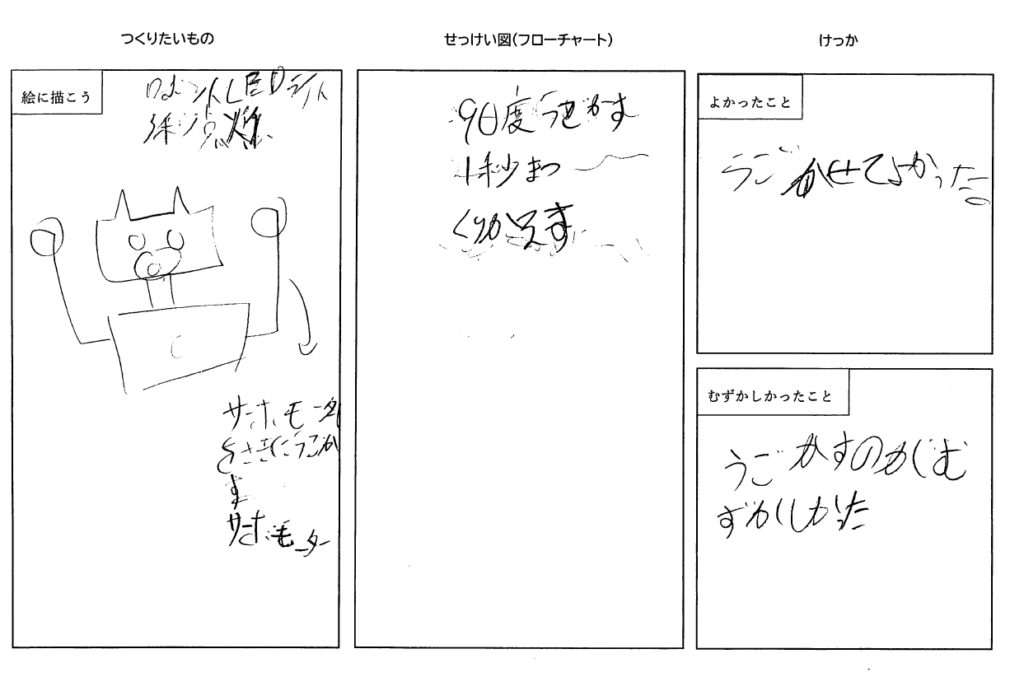 つくりたいもの
絵に描こう
LEDライト
サーボモータ
をさきにうごか
す
サーボモーター
せっけい図(フローチャート)
90度うごかす
1秒まつ
くりかえす
けっか
よかったこと
うごかせてよかった
むずかしかったこと
うごかすのがむ
ずかしかった